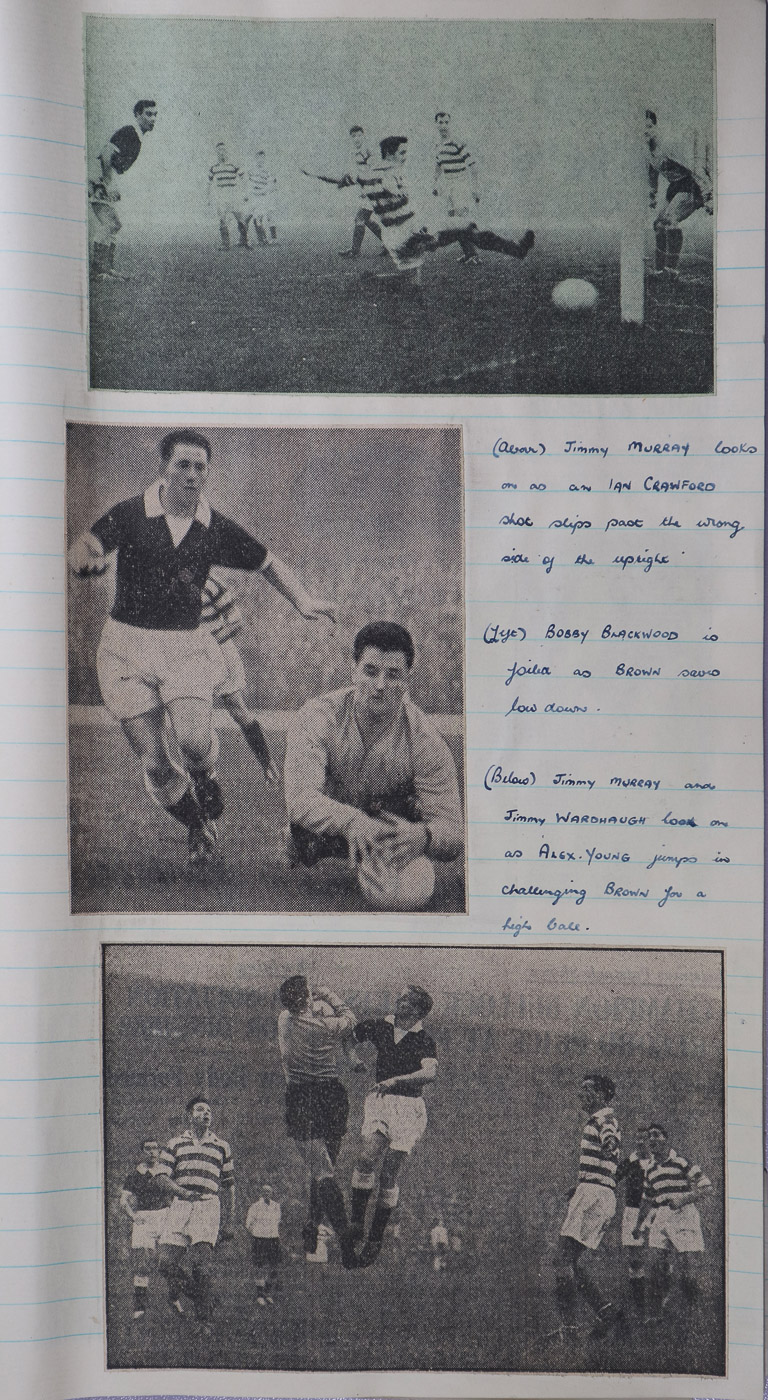 (Above) Jimmy MURRAY looks
on as an IAN CRAWFORD
shot slips past the wrong
side of the upright
(Left) BOBBY BLACKWOOD is
foiled as BROWN saves
low down.
(Below) Jimmy MURRAY and
Jimmy WARDHAUGH look on
as ALEX. YOUNG jumps in
challenging BROWN for a
high ball.